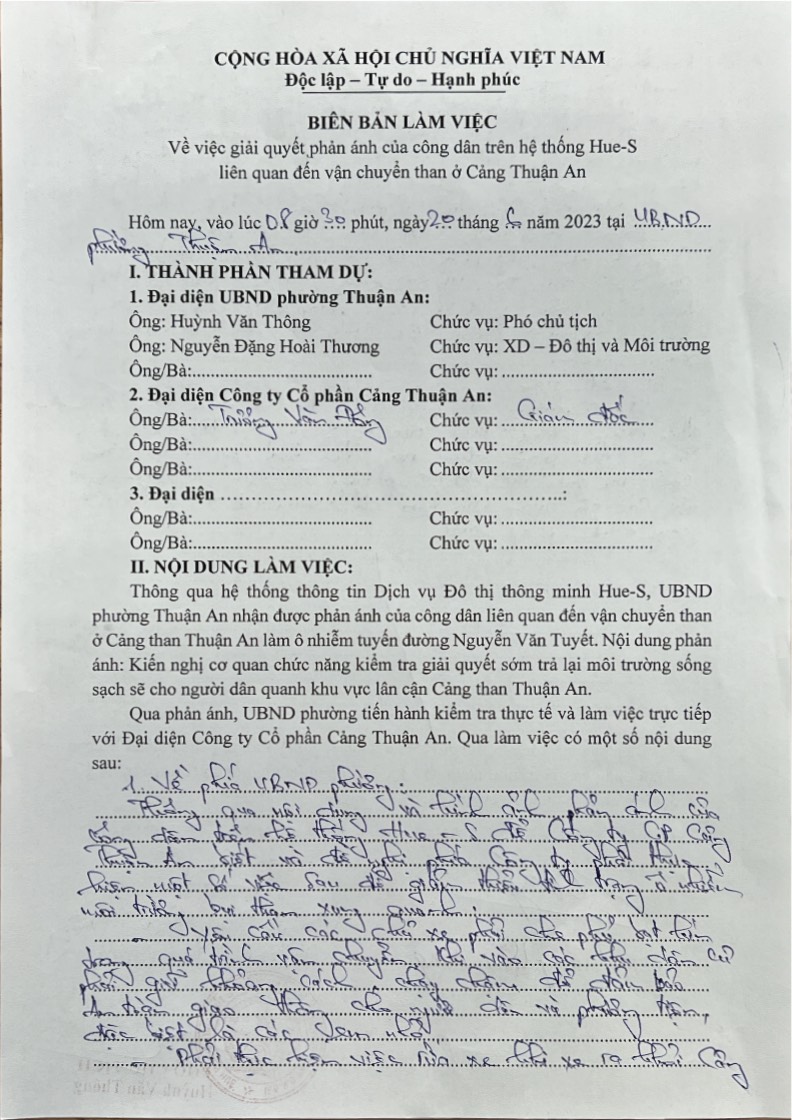 CỘNG HÒA XÃ HỘI CHỦ NGHĨA VIỆT NAM
Độc lập – Tự do – Hạnh phúc
BIÊN BẢN LÀM VIỆC
Về việc giải quyết phản ánh của công dân trên hệ thống Hue-S
liên quan đến vận chuyển than ở Cảng Thuận An
Hôm nay, vào lúc 08 giờ 30 phút, ngày 20 tháng 6 năm 2023 tại UBND
phường Thuận An
I. THÀNH PHẦN THAM DỰ:
1. Đại diện UBND phường Thuận An:
Ông: Huỳnh Văn Thông Chức vụ: Phó chủ tịch
Ông: Nguyễn Đặng Hoài Thương Chức vụ: XD – Đô thị và Môi trường
Ông/Bà:.................................... Chức vụ: ..............................
2. Đại diện Công ty Cổ phần Cảng Thuận An:
Ông/Bà: Trương Văn Chức vụ: Giám đốc
Ông/Bà:.................................... Chức vụ: ..............................
Ông/Bà:.................................... Chức vụ: ..............................
3. Đại diện ………………………………………………..:
Ông/Bà:.................................... Chức vụ: ..............................
Ông/Bà:.................................... Chức vụ: ..............................
II. NỘI DUNG LÀM VIỆC:
Thông qua hệ thống thông tin Dịch vụ Đô thị thông minh Hue-S, UBND
phường Thuận An nhận được phản ánh của công dân liên quan đến vận chuyển than
ở Cảng than Thuận An làm ô nhiễm tuyến đường Nguyễn Văn Tuyết. Nội dung phản
ánh: Kiến nghị cơ quan chức năng kiểm tra giải quyết sớm trả lại môi trường sống
sạch sẽ cho người dân quanh khu vực lân cận Cảng than Thuận An.
Qua phản ánh, UBND phường tiến hành kiểm tra thực tế và làm việc trực tiếp
với Đại diện Công ty Cổ phần Cảng Thuận An. Qua làm việc có một số nội dung
sau:
1. Về phía UBND phường:
Thông qua nội dung và hình ảnh phản ánh của
công dân trên hệ thống Hue-S để Công ty CP Cảng
Thuận An biết và đề nghị phía Công ty phải thực
hiện một số việc sau để giảm thiểu tình trạng ô nhiễm
môi trường bụi than xung quanh:
- Yêu cầu các chủ xe phải che phủ bạt kín
trong quá trình vận chuyển. Khi vào các khu dân cư
phải giữ khoảng cách, chạy chậm để đảm bảo
An toàn giao thông cho người dân và phương tiện,
đặc biệt là các em nhỏ.
- Phải thực hiện việc rửa xe khi xe ra khỏi Cảng
Huỳnh Văn Thông